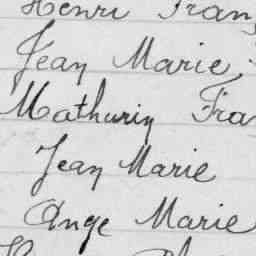 Henri Fran
Jean Marie
Mathurin Fra
Jean Marie
Ange Marie